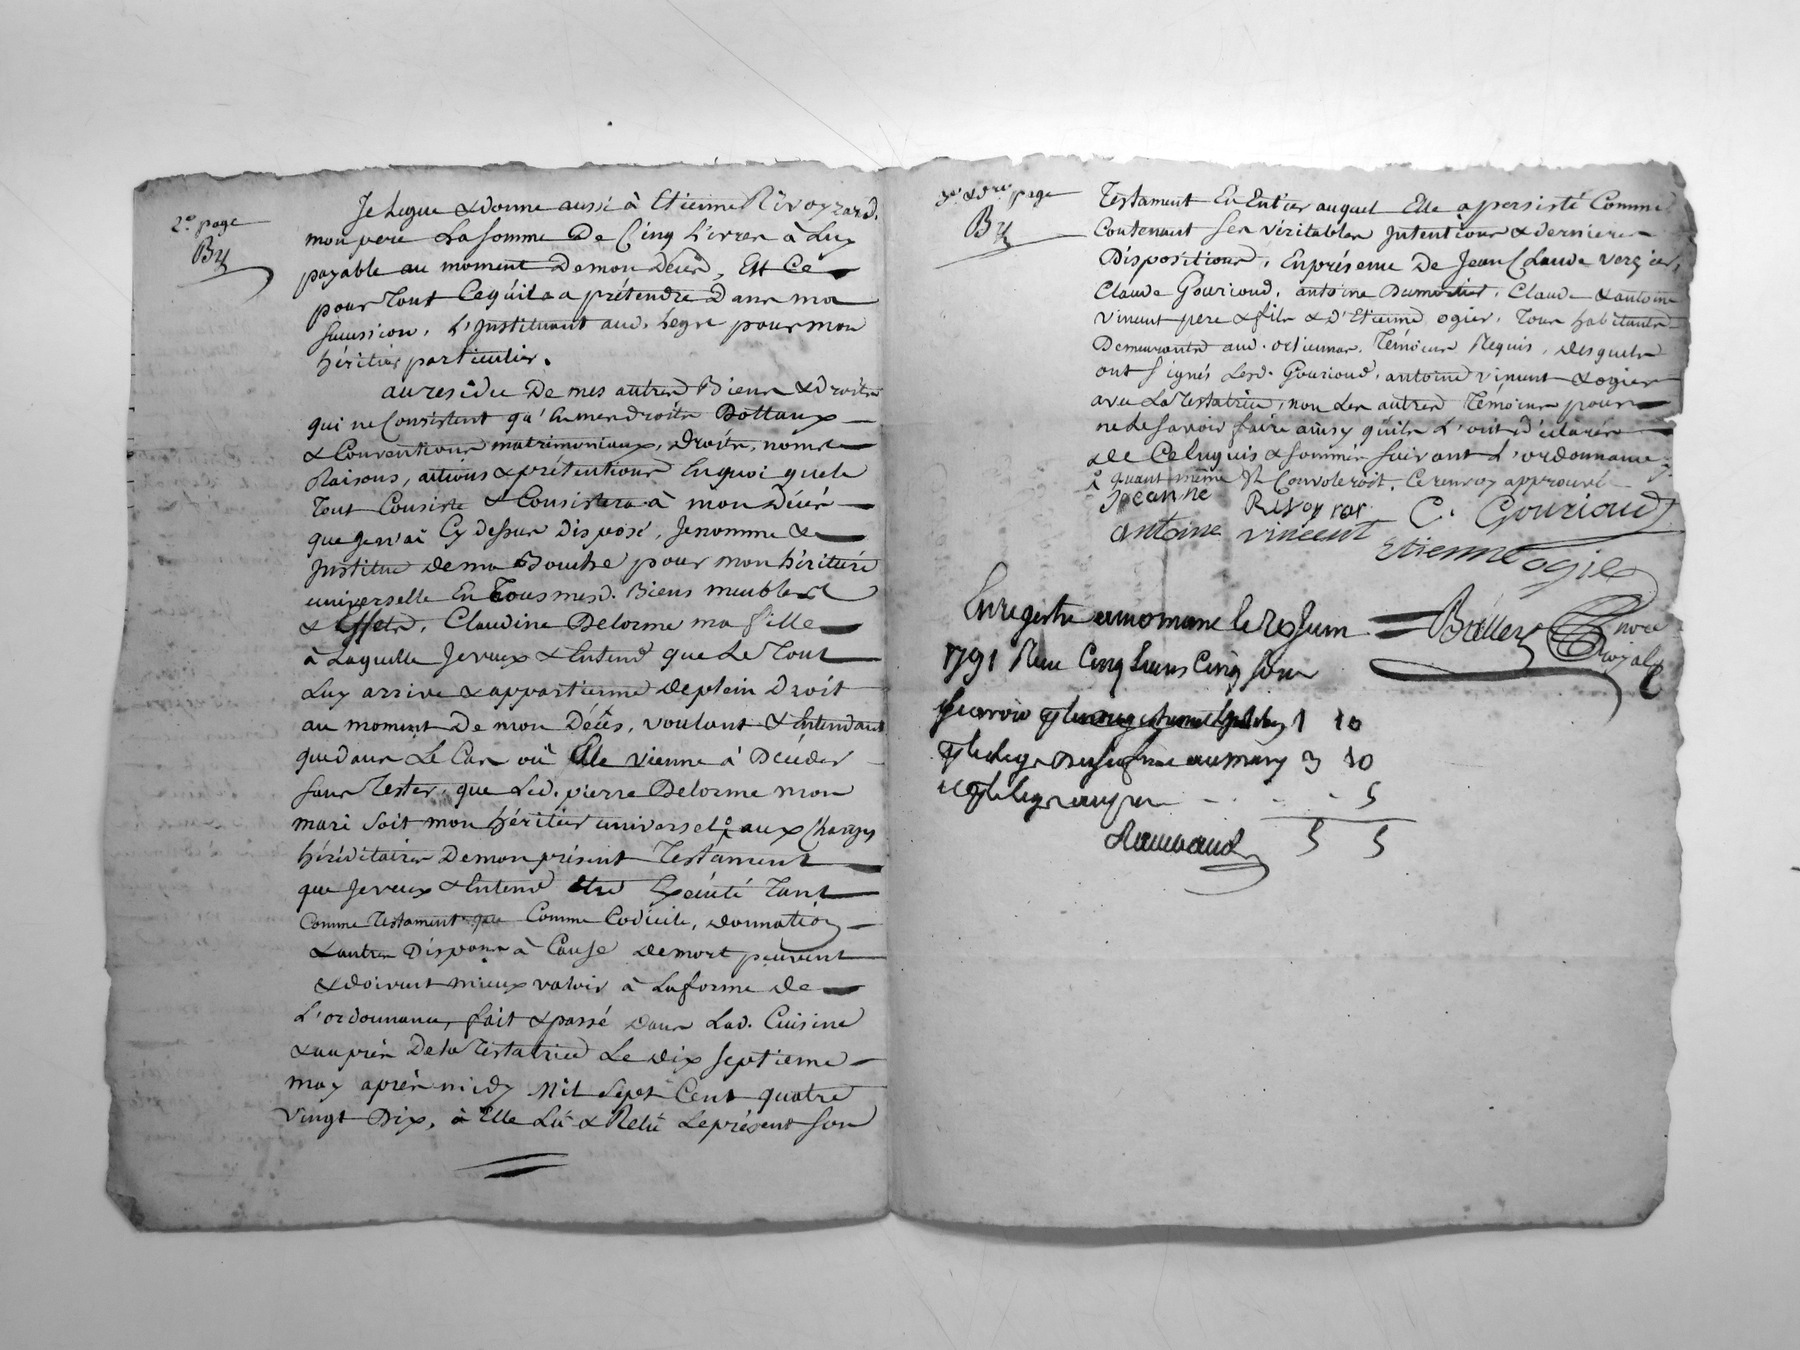 2e. page
By
Je Legue & donne aussi à Etienne Rivoyrard.
mon pere La somme De Cinq Livres à Luy
payable au moment De mon Décéd, Et Ce
pour Tout Ce qu'il a a prétendre Dans ma
Succession, L'Instituant aud. Legs pour mon
héritier particulier.
au residu De mes autres Biens & droits
qui ne Consistent qu'En mes droits Dottaux
& Conventions matrimoniaux, droits, noms
Raisons, actions & prétentions En quoi que le
Tout Consiste & Consistera à mon Décès
que Je n'ai Cy dessus Disposé, Je nomme &
Institue de ma Bouche pour mon héritiere
universelle En Tous mesd. Biens meubles
& Effets, Claudine Delorme ma fille
à Laquelle Je veux & Entend que Le Tout
Luy arrive & appartienne de plein Droit
au moment De mon Décès, voulant & Entendant
que dans Le Cas où Elle vienne à Décéder
sans Tester, que Led. pierre Delorme mon
mari soit mon héritier universel aux Charges
héréditaires De mon présent Testament
que Je veux & Entend Etre Exécuté Tant
Comme Testament que Comme Codicile, donnation
& autres Disponn à Cause de mort peuvent
& doivent mieux valoir à La forme de
L'ordonnance, fait & passé dans Lad. Cuisine
& auprès De la Testatrice Le dix septieme
may après midy Mil Sept Cent quatre
vingt Dix, à Elle Lu & Relu Le présent son
3e. & dre. page
By
Testament En Entier auquel Elle a persisté Comme
Contenant ses véritables Intentions & dernieres
Dispositions, En présence De Jean Claude vergier,
Claude Gourioud, antoine Dumortier, Claude & antoine
vincent pere & fils & d'Etienne ogier, Tous habitants
Demeurants aud. Témoins Requis, desquels
ont signés Lesd. Gourioud, antoine vincent & ogier
avec La Testatrice, non Les autres Témoins pour
ne Le savoir faire ainsy qu'ils L'ont déclaré
de Ce Enquis & sommés suivant L'ordonnance
quant même Il Convoleroit, Ce renvoy approuvé
Jeanne Rivoyrar C. Gouriaud
antoine vincent Etienne ogier
Enregistré a Romane le 20 Juin
1791 Reçu Cinq Livres Cinq Sous
1 10
3 10
5
5 5
notre
Royal